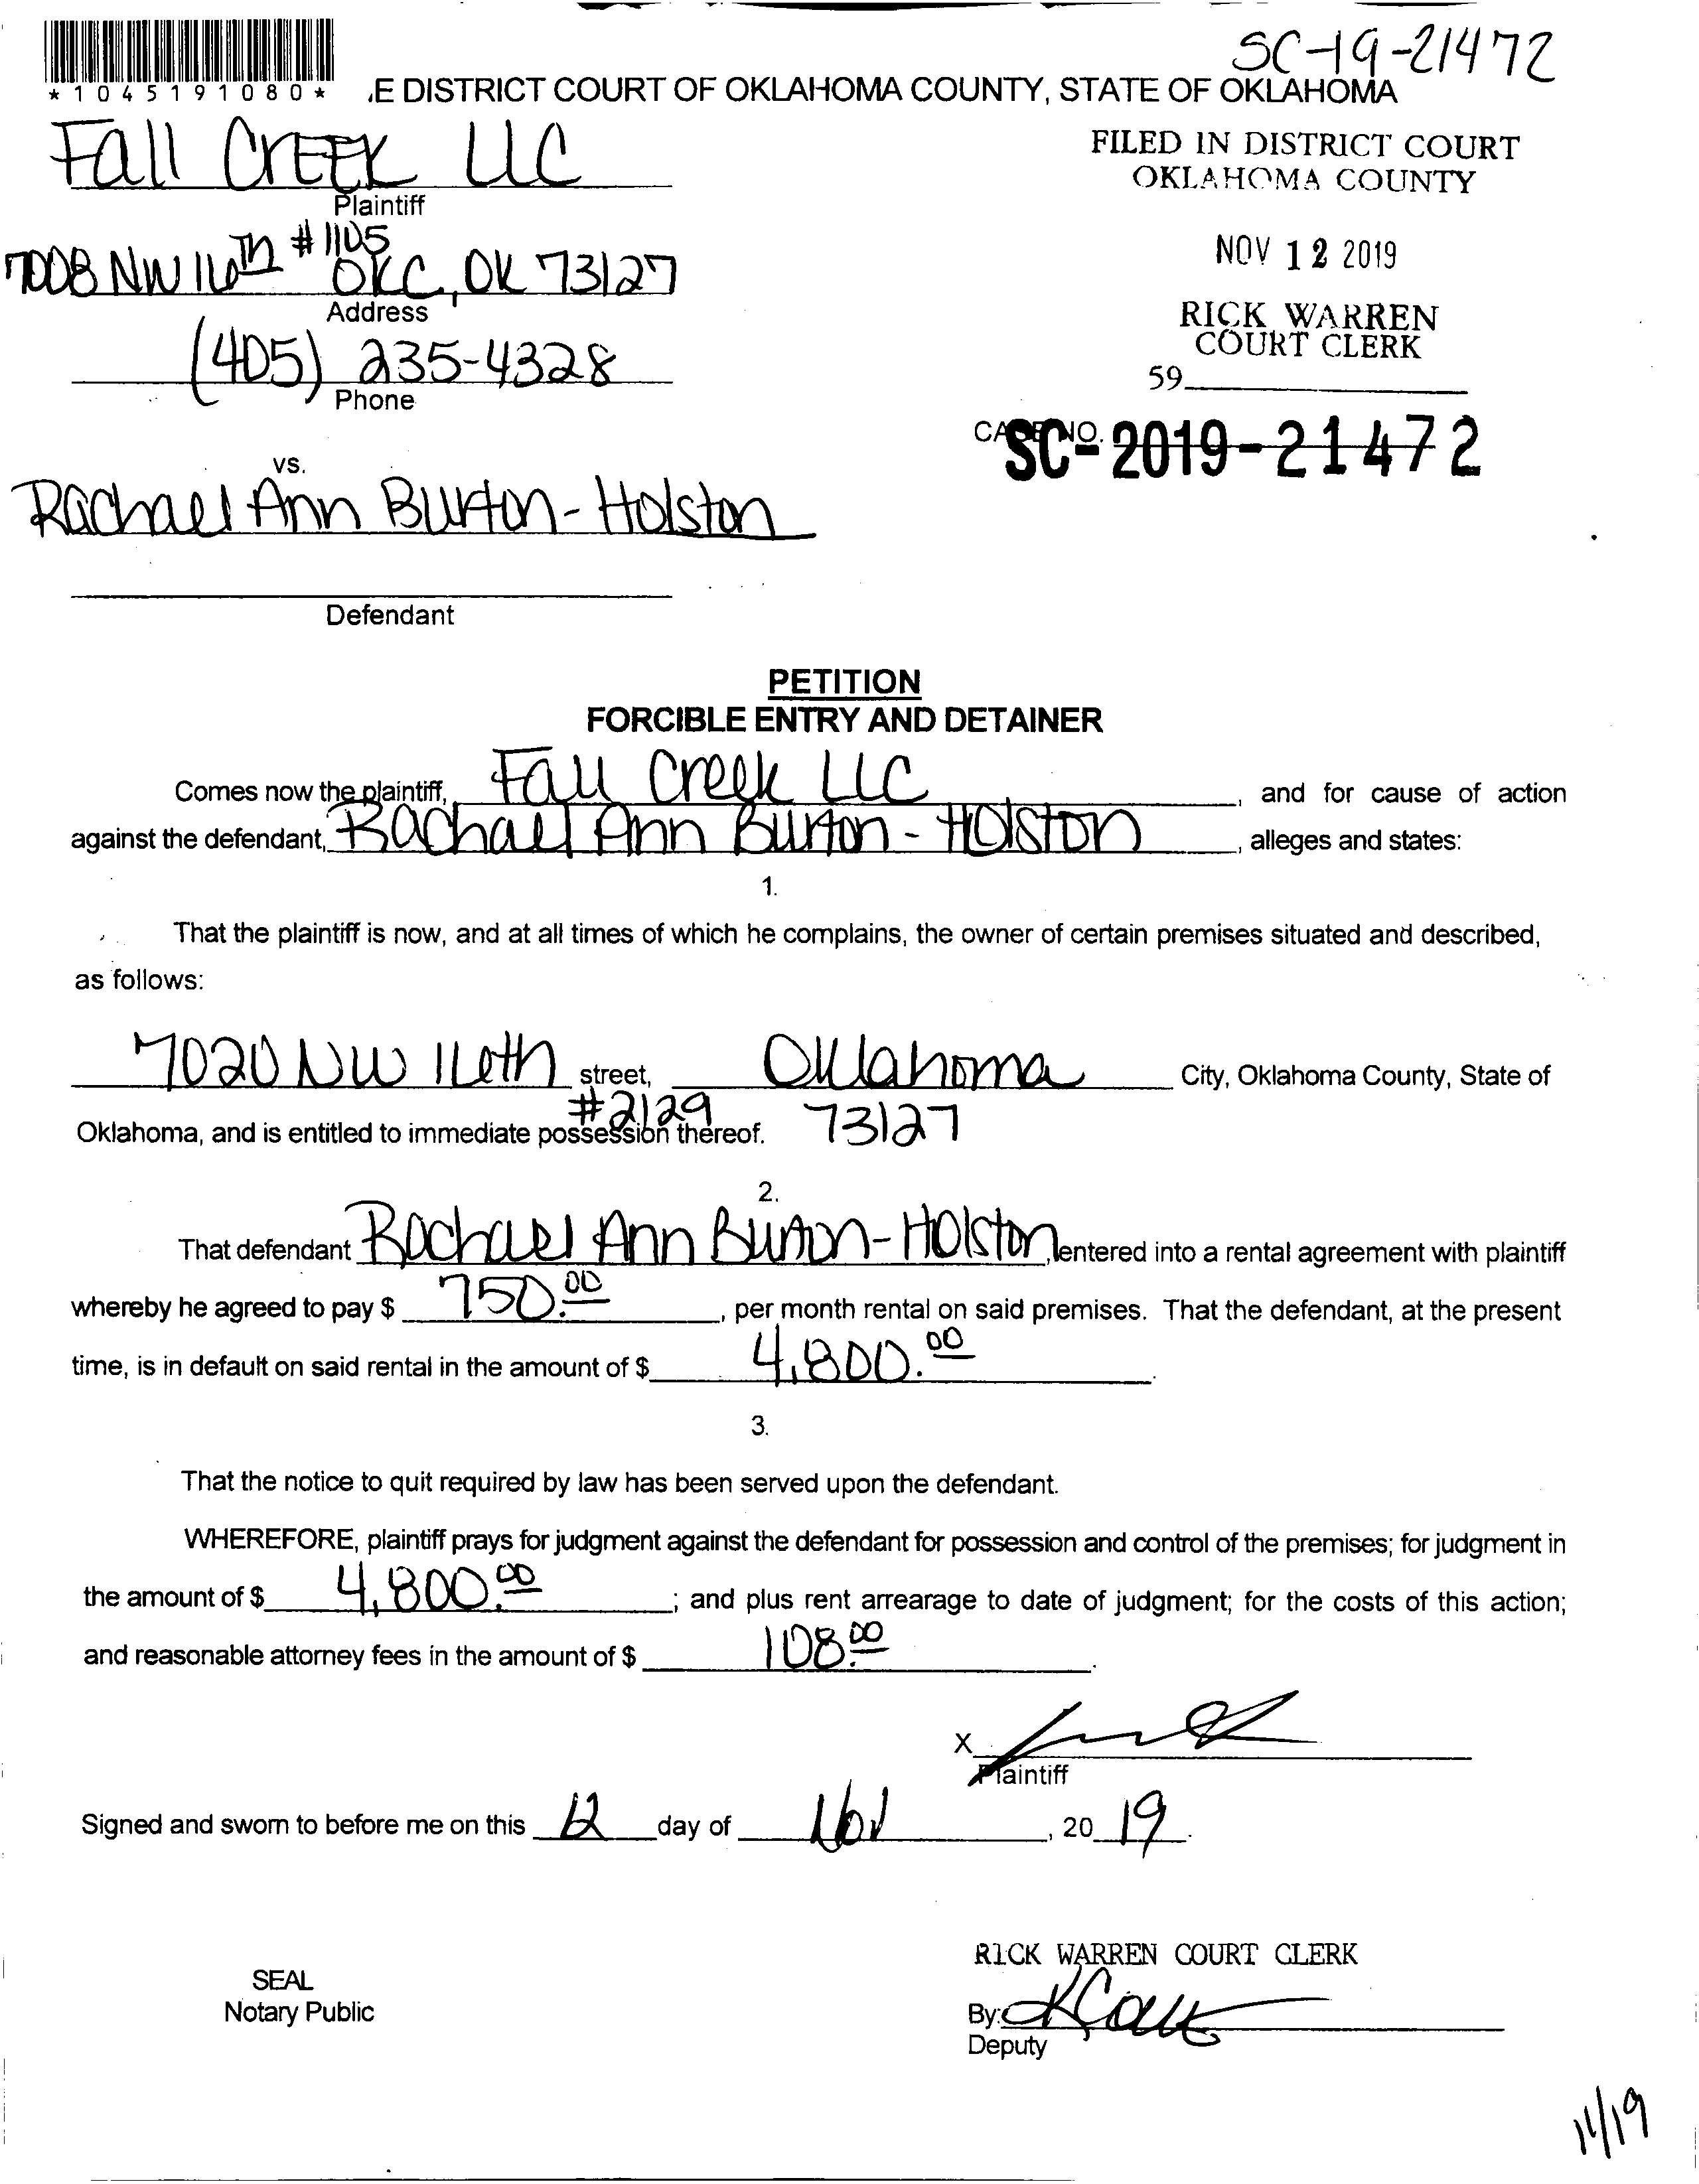 SC-19-21472
*1045191080*
E DISTRICT COURT OF OKLAHOMA COUNTY, STATE OF OKLAHOMA
Fall Creek LLC
Plaintiff
FILED IN DISTRICT COURT
OKLAHOMA COUNTY
7008 NW 16th #1105 OKC, OK 73127
Address
NOV 12 2019
(405) 235-4328
Phone
RICK WARREN
COURT CLERK
59
CASE NO. SC-2019-21472
vs.
Rachael Ann Burton-Holston
Defendant
PETITION
FORCIBLE ENTRY AND DETAINER
Comes now the plaintiff, Fall Creek LLC, and for cause of action
against the defendant, Rachael Ann Burton-Holston, alleges and states:
1.
That the plaintiff is now, and at all times of which he complains, the owner of certain premises situated and described,
as follows:
7020 NW 16th street, Oklahoma City, Oklahoma County, State of
#2129 73127
Oklahoma, and is entitled to immediate possession thereof.
2.
That defendant Rachael Ann Burton-Holston, entered into a rental agreement with plaintiff
whereby he agreed to pay $ 750.00, per month rental on said premises. That the defendant, at the present
time, is in default on said rental in the amount of $ 4,800.00.
3.
That the notice to quit required by law has been served upon the defendant.
WHEREFORE, plaintiff prays for judgment against the defendant for possession and control of the premises; for judgment in
the amount of $ 4,800.00; and plus rent arrearage to date of judgment; for the costs of this action;
and reasonable attorney fees in the amount of $ 108.00.
X
Plaintiff
Signed and sworn to before me on this 12 day of Nov, 2019.
RICK WARREN COURT CLERK
SEAL
Notary Public
By:
Deputy
11/19